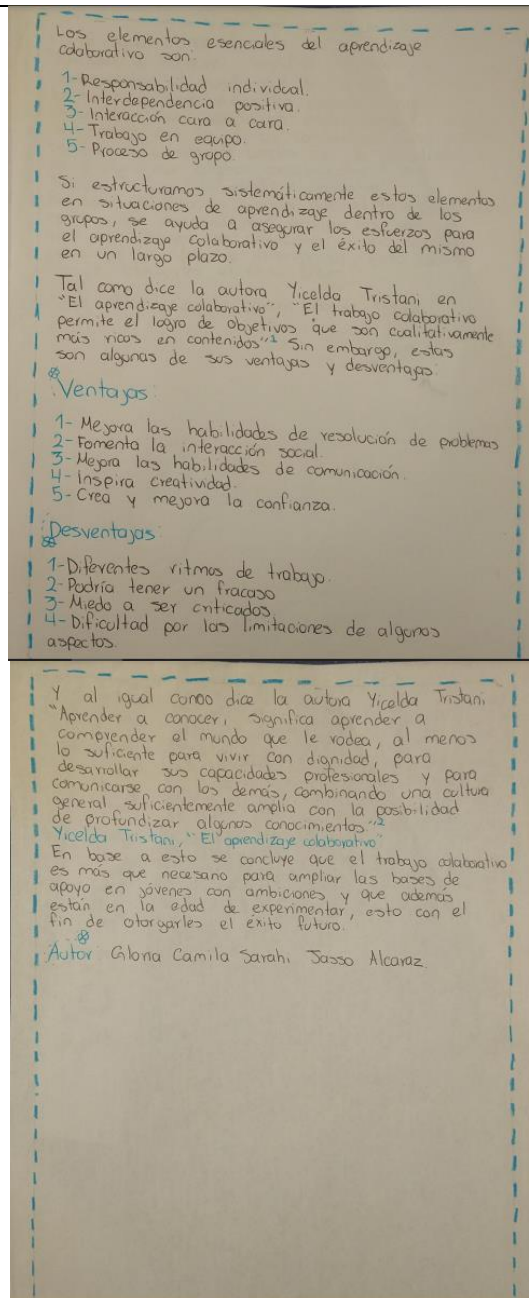 Los elementos esenciales del aprendizaje
colaborativo son:
1-Responsabilidad individual.
2-Interdependencia positiva.
3-Interacción cara a cara.
4-Trabajo en equipo.
5-Proceso de grupo.
Si estructuramos sistemáticamente estos elementos
en situaciones de aprendizaje dentro de los
grupos, se ayuda a asegurar los esfuerzos para
el aprendizaje colaborativo y el éxito del mismo
en un largo plazo.
Tal como dice la autora Yicelda Tristani en
"El aprendizaje colaborativo", "El trabajo colaborativo
permite el logro de objetivos que son cualitativamente
más ricos en contenidos"1 Sin embargo, estas
son algunas de sus ventajas y desventajas:
Ventajas:
1-Mejora las habilidades de resolución de problemas
2-Fomenta la interacción social.
3-Mejora las habilidades de comunicación.
4-Inspira creatividad.
5-Crea y mejora la confianza.
Desventajas:
1-Diferentes ritmos de trabajo.
2-Podría tener un fracaso
3-Miedo a ser criticados
4-Dificultad por las limitaciones de algunos
aspectos.
Y al igual como dice la autora Yicelda Tristani,
"Aprender a conocer, significa aprender a
comprender el mundo que le rodea, al menos
lo suficiente para vivir con dignidad, para
desarrollar sus capacidades profesionales y para
comunicarse con los demás, combinando una cultura
general suficientemente amplia con la posibilidad
de profundizar algunos conocimientos"2
Yicelda Tristani, "El aprendizaje colaborativo"
En base a esto se concluye que el trabajo colaborativo
es más que necesario para ampliar las bases de
apoyo en jóvenes con ambiciones y que además
están en la edad de experimentar, esto con el
fin de otorgarles el éxito futuro.
Autor Gloria Camila Sarahi Jasso Alcaraz.